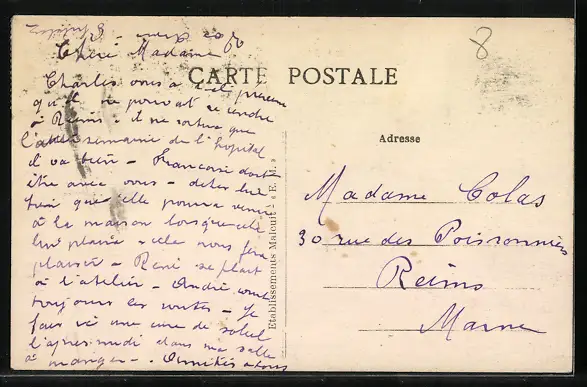 Chère Madame
Charles vous a t-il prévenu
qu'il ne pouvait se rendre
à Reims - il ne sortira que
l'autre semaine de l'hopital
il va bien - Françoise doit
être avec vous - dites lui
bien que elle pourra venir
à la maison lorsque cela
lui plaira - cela nous fera
plaisir - René se plait
à l'atelier - André court
toujours les routes - Je
fais ici une cure de soleil
l'après midi dans ma salle
à manger - Amitiés à tous
CARTE POSTALE
Adresse
Madame Colas
30 rue des Poissonniers
Reims
Marne
8
Etablissements Malcuit